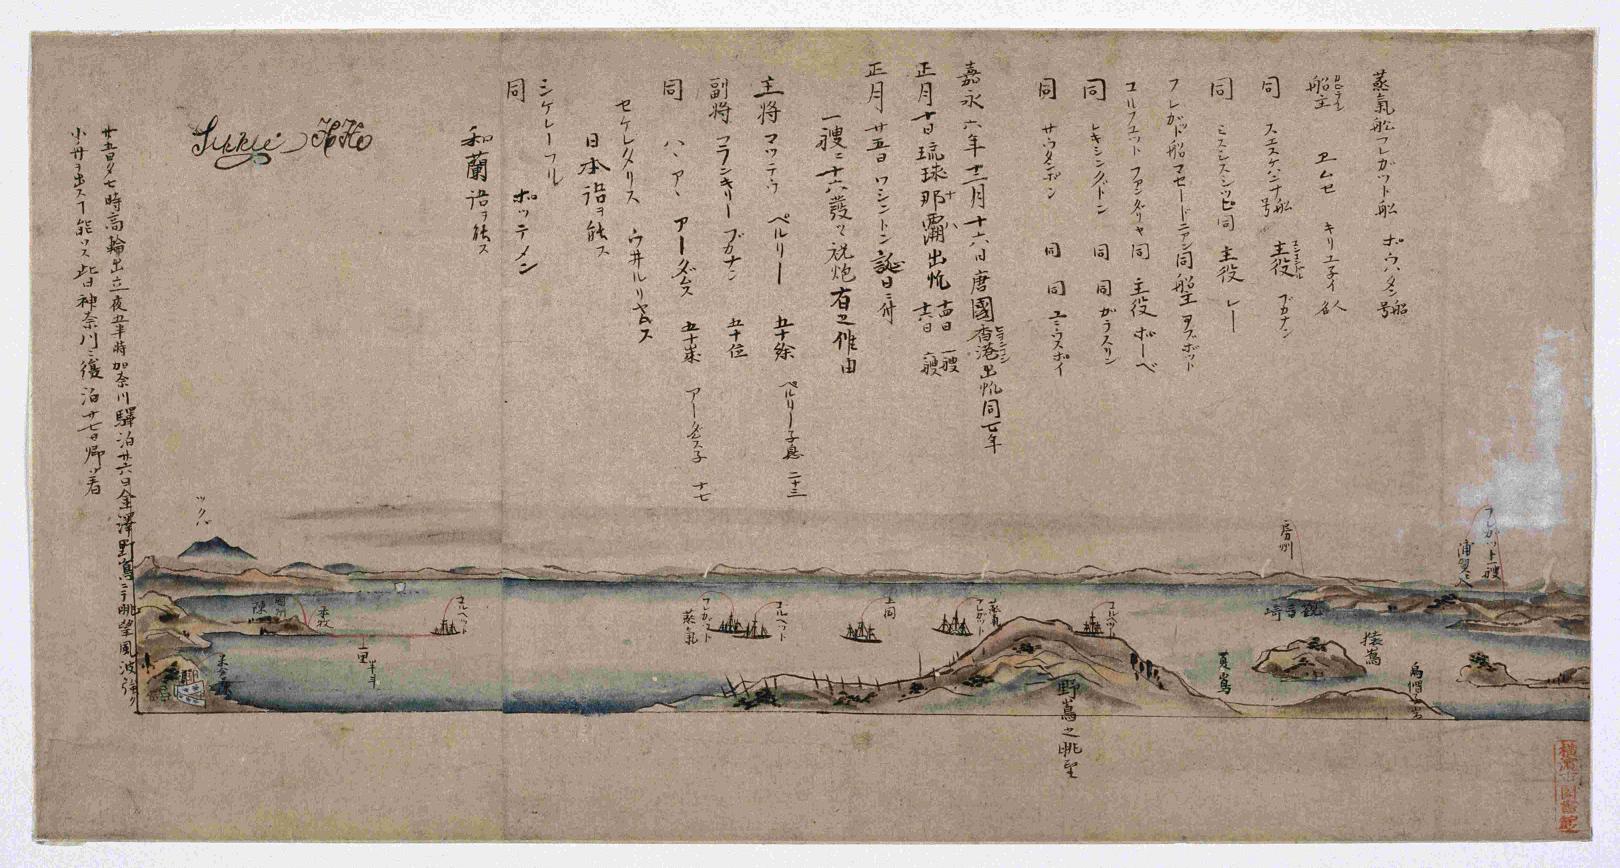 蒸氣船フレガット船 ポウハタン船号
船主 ヱムセ キリユ子イ 名人
カピテイン
同 スエスケハンナ船号 主役 ブカナン
同 ミスシスシッピ同 主役 レー
フレガット船 マセードニアン同 船主 ヲブボット
コルフエット ファンダリヤ 同 主役 ポーペ
同 レキシングトン 同 同 ガラスリン
同 サウタンポン 同 同 ユニウスボイ
嘉永六年十二月十六日唐國香港出帆同七年
ホンコン
正月十日琉球那霸出帆 十四日 一艘 十六日 一艘
ナハ
正月廿五日ワシントン誕日ニ付
一艘ニ十六發ツヽ祝炮有之候由
主将 マツテウ ペルリー 五十餘 ペルリー子息 二十三
副将 フランキリー ブカナン 五十位
同 ハ、ア、 アーダムス 五十歳 アーダムス子 十七
セケレタリス ウヰルリヤムス
日本語ヲ能ス
シケレーフル
同 ポッテメン
和蘭語ヲ能ス
廿五日夕七時高輪出立夜五半時加奈川驛泊廿六日金澤野嶌ニテ眺望風波強ク
小舟ヲ出ス丁能ハス此日神奈川ニ復泊廿七日帰着
ツクハ
房州
フレガット一艘
浦賀
観音崎
猿嶌
夏嶌
烏帽子岩
コルベット
フレガット
蒸氣
上同
コルベット
フレガット
蒸氣
コルベット
本牧
陳
一里半
野嶌之眺望
横濱市圖書館